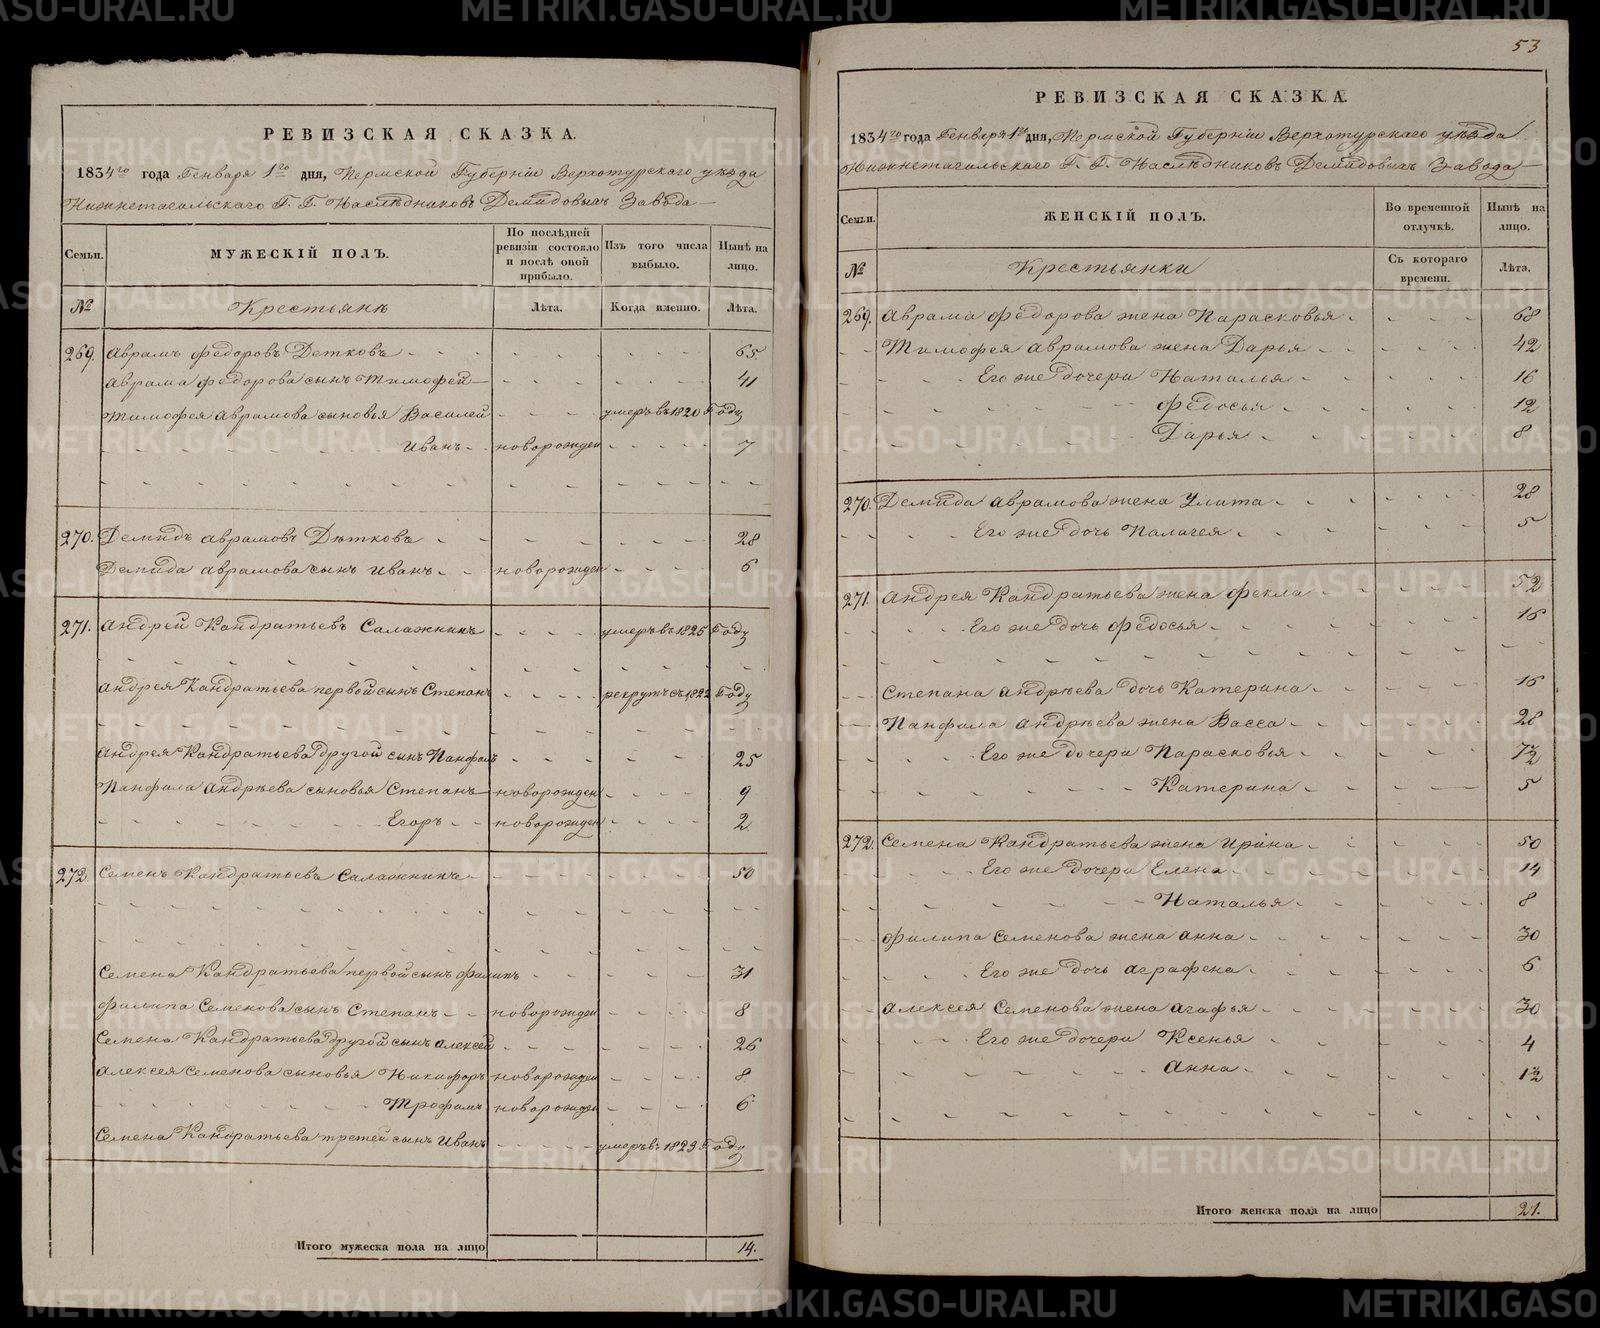 РЕВИЗСКАЯ СКАЗКА.
1834го года Генваря 1го дня, Пермской Губерніи Верхотурскаго уѣзда
Нижнетагильскаго Г. Г. Наслѣдниковъ Демидовыхъ Завода
Семьи.
МУЖЕСКІЙ ПОЛЪ.
По послѣдней ревизіи состояло и послѣ оной прибыло.
Изъ того числа выбыло.
Нынѣ на лицо.
№
Крестьянѣ
Лѣта.
Когда именно.
Лѣта.
269. Аврамъ Федоровъ Детковъ 65.
Аврама Федорова сынъ Тимофей 41
Тимофея Аврамова сыновья Василей умеръ въ 1820 Году
Иванъ новорожден 7
270. Демидъ Аврамовъ Дѣтковъ 28
Демида Аврамова сынъ Иванъ новорожден 6
271. Андрей Кандратьевъ Салажнинъ умеръ въ 1825 Году
Андрея Кандратьева первой сынъ Степанъ рекрутъ съ 1822 Году
Андрея Кандратьева другой сынъ Панфилъ 25
Панфила Андрѣева сыновья Степанъ новорожден 9
Егоръ новорожден 2
272. Семенъ Кандратьева Салажнинъ 50
Семена Кандратьева первой сынъ Филипъ 31
Филипа Семенова сынъ Степанъ новорожден 8
Семена Кандратьева другой сынъ Алексей 26
Алексея Семенова сыновья Никифоръ новорожден 8
Трофимъ новорожден 6
Семена Кандратьева третей сынъ Иванъ умеръ въ 1823 Году
Итого мужеска пола на лицо 14.
53
РЕВИЗСКАЯ СКАЗКА.
1834го года Генваря 1го дня, Пермской Губерніи Верхотурскаго уѣзда
Нижнетагильскаго Г. Г. Наслѣдниковъ Демидовыхъ Завода
Семьи.
ЖЕНСКІЙ ПОЛЪ.
Во временной отлучкѣ.
Нынѣ на лицо.
№
Крестьянки
Съ котораго времени.
Лѣта.
269. Аврама Федорова жена Парасковья 68
Тимофея Аврамова жена Дарья 42
Его же дочери Наталья 16
Федосья 12
Дарья 8
270. Демида Аврамова жена Улита 28
Его же дочь Палагея 5
271. Андрея Кандратьева жена Фекла 52
Его же дочь Федосья 16
Степана Андрѣева дочь Катерина 16
Панфила Андрѣева жена Васса 28
Его же дочери Парасковья 7½
Катерина 5
272. Семена Кандратьева жена Ирина 50
Его же дочери Елена 14
Наталья 8
Филипа Семенова жена Анна 30
Его же дочь Аграфена 6
Алексея Семенова жена Агафья 30
Его же дочери Ксенья 4
Анна 1½
Итого женска пола на лицо 21.
METRIKI.GASO-URAL.RU